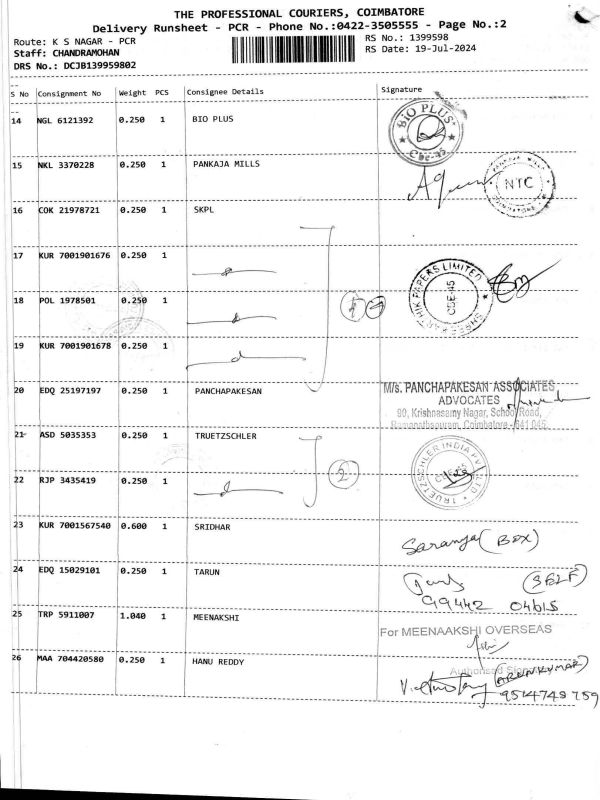 THE PROFESSIONAL COURIERS, COIMBATORE
Delivery Runsheet - PCR - Phone No.:0422-3505555 - Page No.:2
Route: K S NAGAR - PCR
RS No.: 1399598
Staff: CHANDRAMOHAN
RS Date: 19-Jul-2024
DRS No.: DCJB139959802
S No Consignment No Weight PCS Consignee Details Signature
14 NGL 6121392 0.250 1 BIO PLUS
BIO PLUS
CBE-45
15 NKL 3370228 0.250 1 PANKAJA MILLS
NTC
16 COK 21978721 0.250 1 SKPL
17 KUR 7001901676 0.250 1
PAPERS LIMITED
CBE-45
18 POL 1978501 0.250 1
19 KUR 7001901678 0.250 1
20 EDQ 25197197 0.250 1 PANCHAPAKESAN
M/s. PANCHAPAKESAN ASSOCIATES
ADVOCATES
90, Krishnasamy Nagar, School Road,
Ramanathapuram, Coimbatore - 641 045.
21 ASD 5035353 0.250 1 TRUETZSCHLER
TRUETZSCHLER INDIA PVT. LTD
CBE-45
22 RJP 3435419 0.250 1
2
23 KUR 7001567540 0.600 1 SRIDHAR
Saranya (Box)
24 EDQ 15029101 0.250 1 TARUN
(SELF)
99442 04615
25 TRP 5911007 1.040 1 MEENAKSHI
For MEENAAKSHI OVERSEAS
26 MAA 704420580 0.250 1 HANU REDDY
Authorised
(ARUNKUMAR)
9514748759